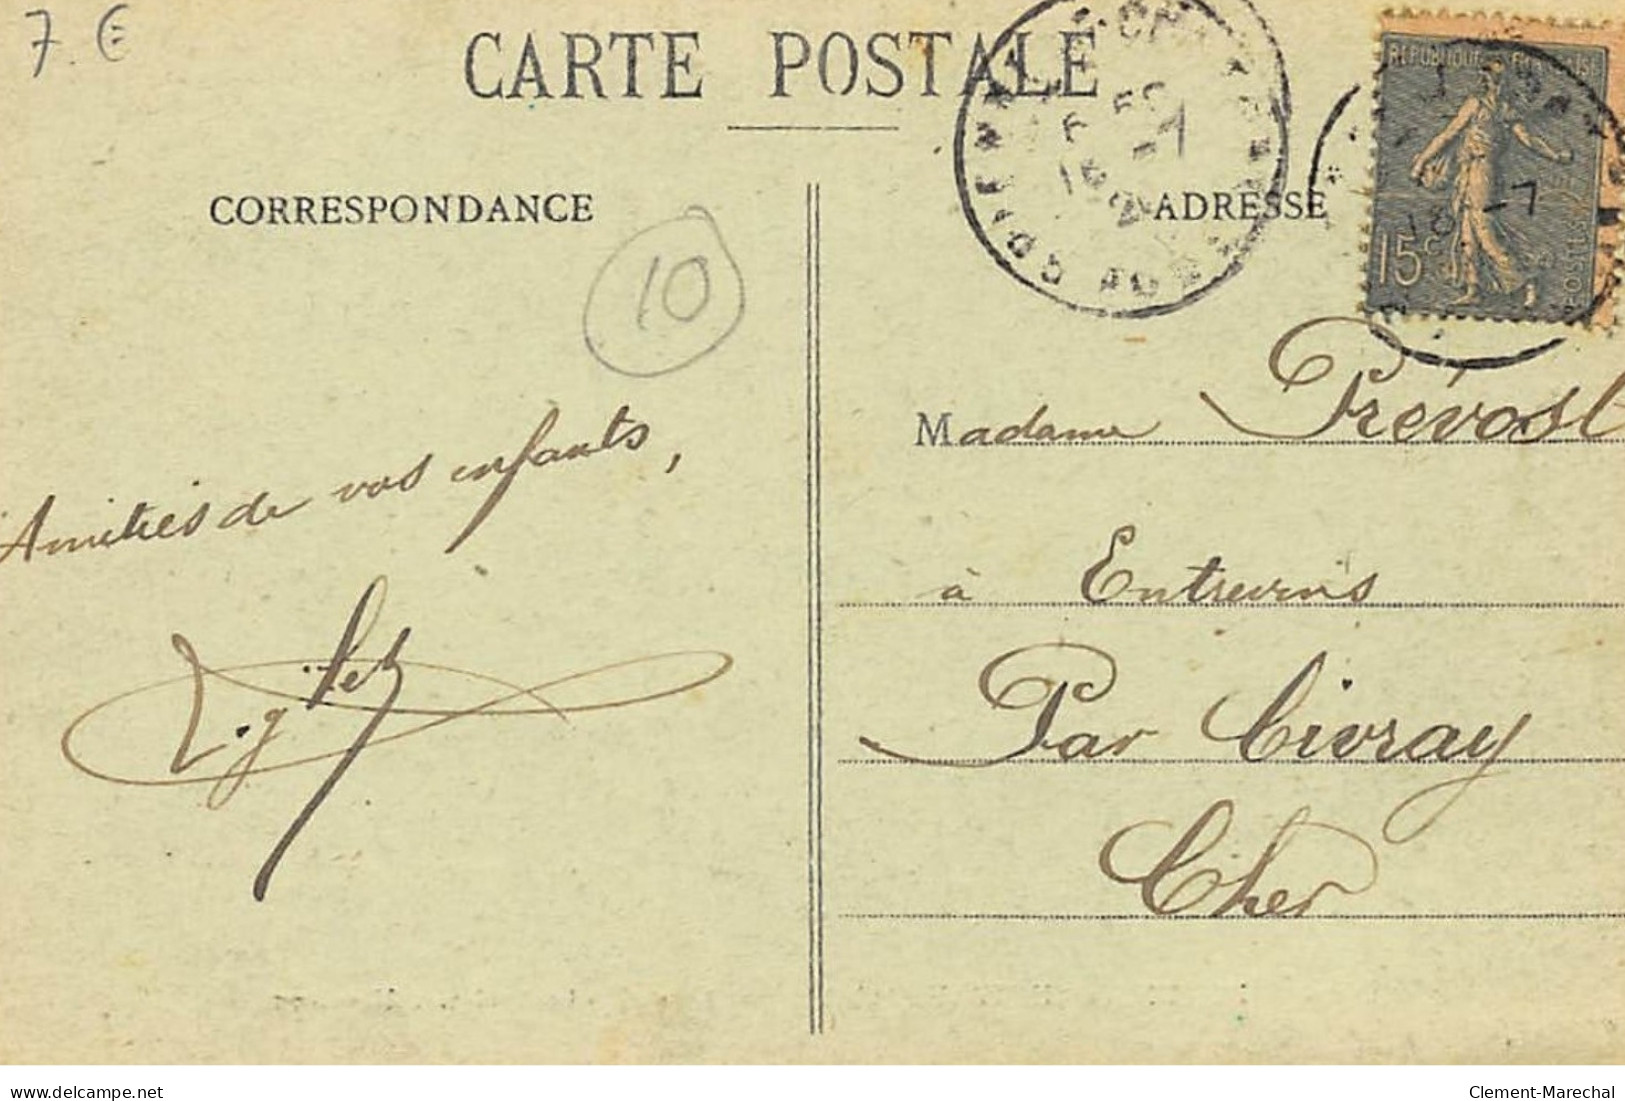 7.€
CARTE POSTALE
CORRESPONDANCE
ADRESSE
10
RÉPUBLIQUE FRANÇAISE
15c
POSTES
16 -7
Amitiés de vos enfants,
Madame Prévost
à Entrevins
Par Civray
Cher
www.delcampe.net
Clement-Marechal